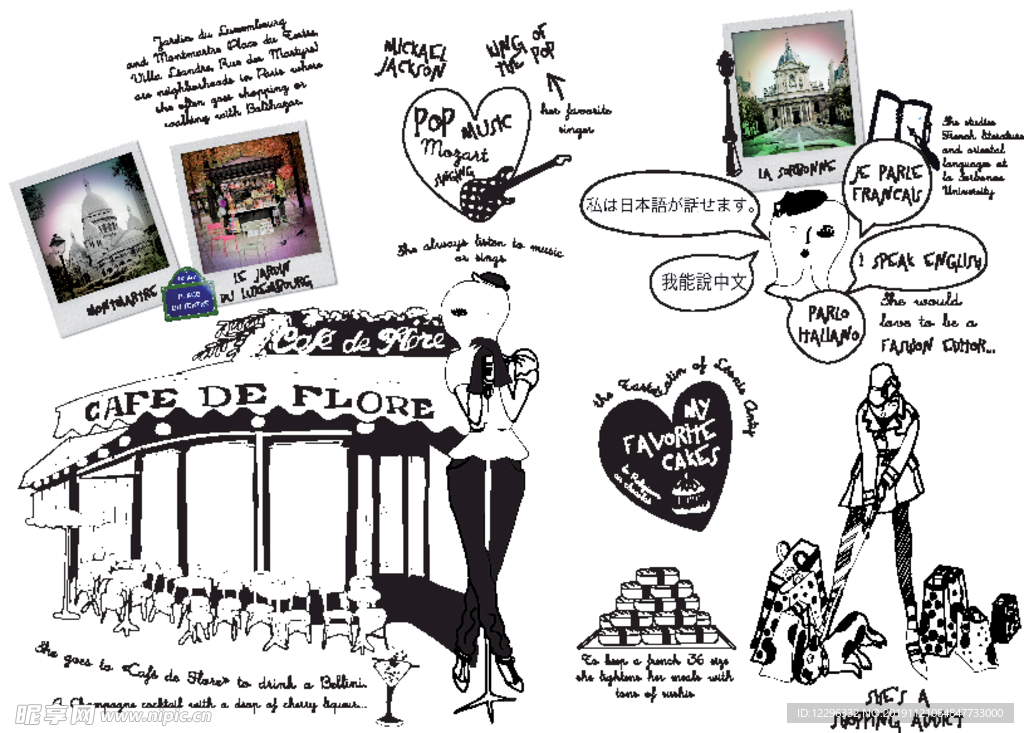 Jardin du Luxembourg
and Montmartre (Place du Tertre,
Villa Léandre, Rue des Martyrs)
are neighborhoods in Paris where
she often goes shopping or
walking with Balthazar.
MONTMARTRE
LE JARDIN
DU LUXEMBOURG
PLACE
DU TERTRE
MICKAEL
JACKSON
KING OF
THE POP
her favorite
singer
POP MUSIC
Mozart
SINGING
She always listen to music
or sings
LA SORBONNE
She studies
French literature
and oriental
languages at
la Sorbonne
University
JE PARLE
FRANCAIS
私は日本語が話せます。
我能說中文
I SPEAK ENGLISH
PARLO
ITALIANO
She would
love to be a
FASHION EDITOR...
Café de Flore
CAFE DE FLORE
MY
FAVORITE
CAKES
She goes to «Cafe de Flore» to drink a Bellini.
A Champagne cocktail with a drop of cherry liqueur...
To keep a french 36 size
she lightens her meals with
tons of sushis
SHE'S A
SHOPPING ADDICT
昵享网 www.nipic.cn
ID:12296332 NO:20191121054847733000